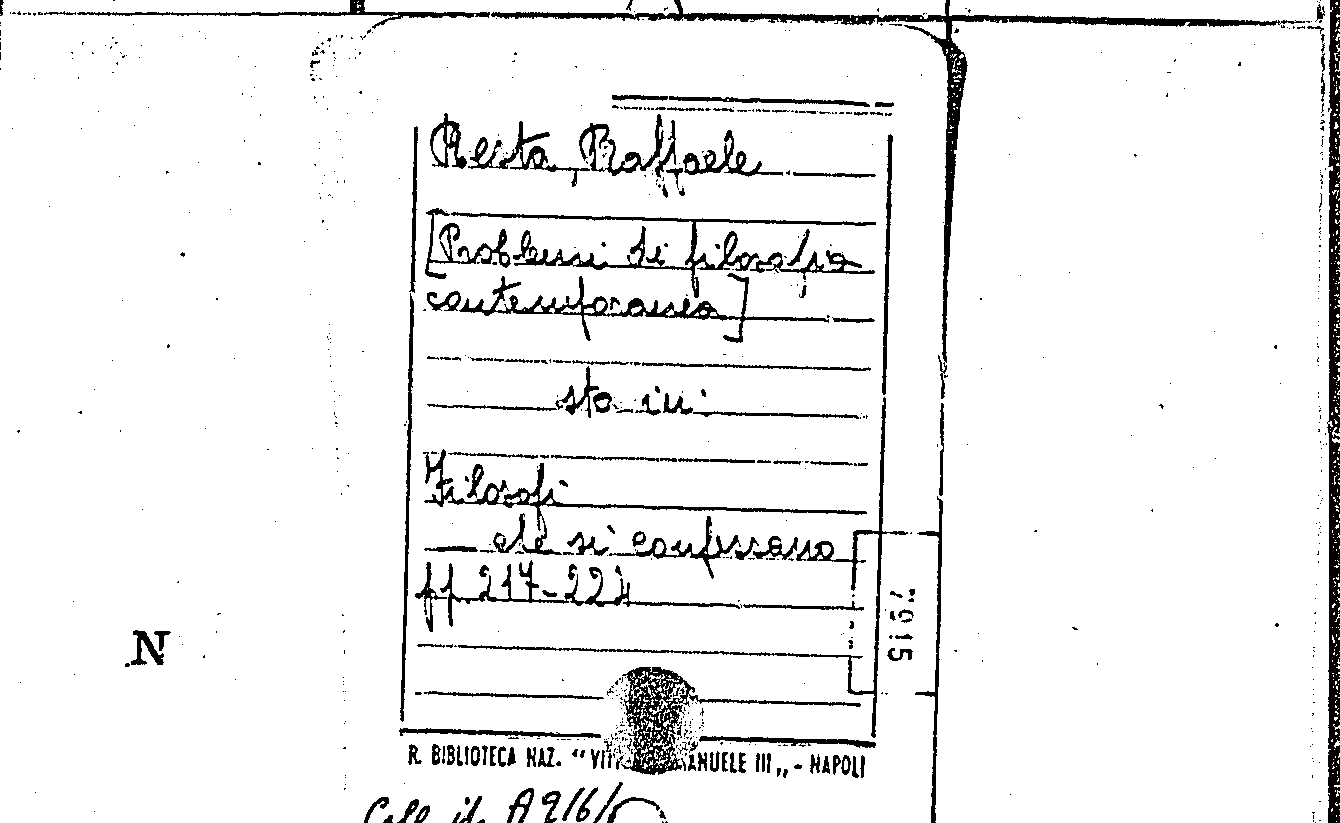 Resta, Raffaele
[Problemi di filosofia
contemporanea]
sta in:
Filosofi
che si confessano
pp. 217-224
7915
N
R. BIBLIOTECA NAZ. “ VITT ANUELE III „ - NAPOLI
Coll. it. A 916/